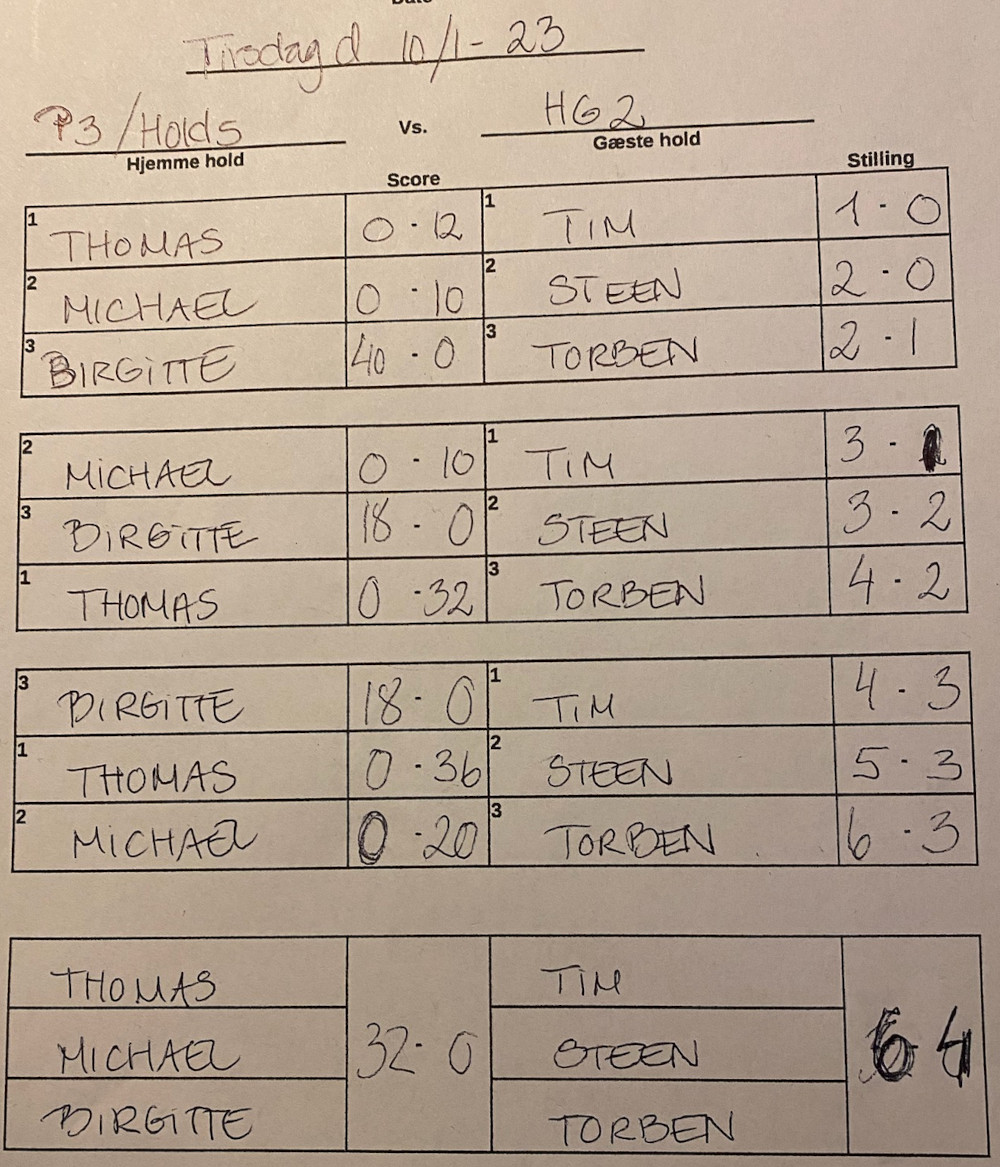 Tirsdag d 10/1-23
P3/Hold5 Vs. HG2
Hjemme hold Gæste hold
Score Stilling
1 THOMAS 0 - 12 1 TIM 1 - 0
2 MICHAEL 0 - 10 2 STEEN 2 - 0
3 BIRGITTE 40 - 0 3 TORBEN 2 - 1
2 MICHAEL 0 - 10 1 TIM 3 - 1
3 BIRGITTE 18 - 0 2 STEEN 3 - 2
1 THOMAS 0 - 32 3 TORBEN 4 - 2
3 BIRGITTE 18 - 0 1 TIM 4 - 3
1 THOMAS 0 - 36 2 STEEN 5 - 3
2 MICHAEL 0 - 20 3 TORBEN 6 - 3
THOMAS TIM
MICHAEL 32 - 0 STEEN 6 4
BIRGITTE TORBEN